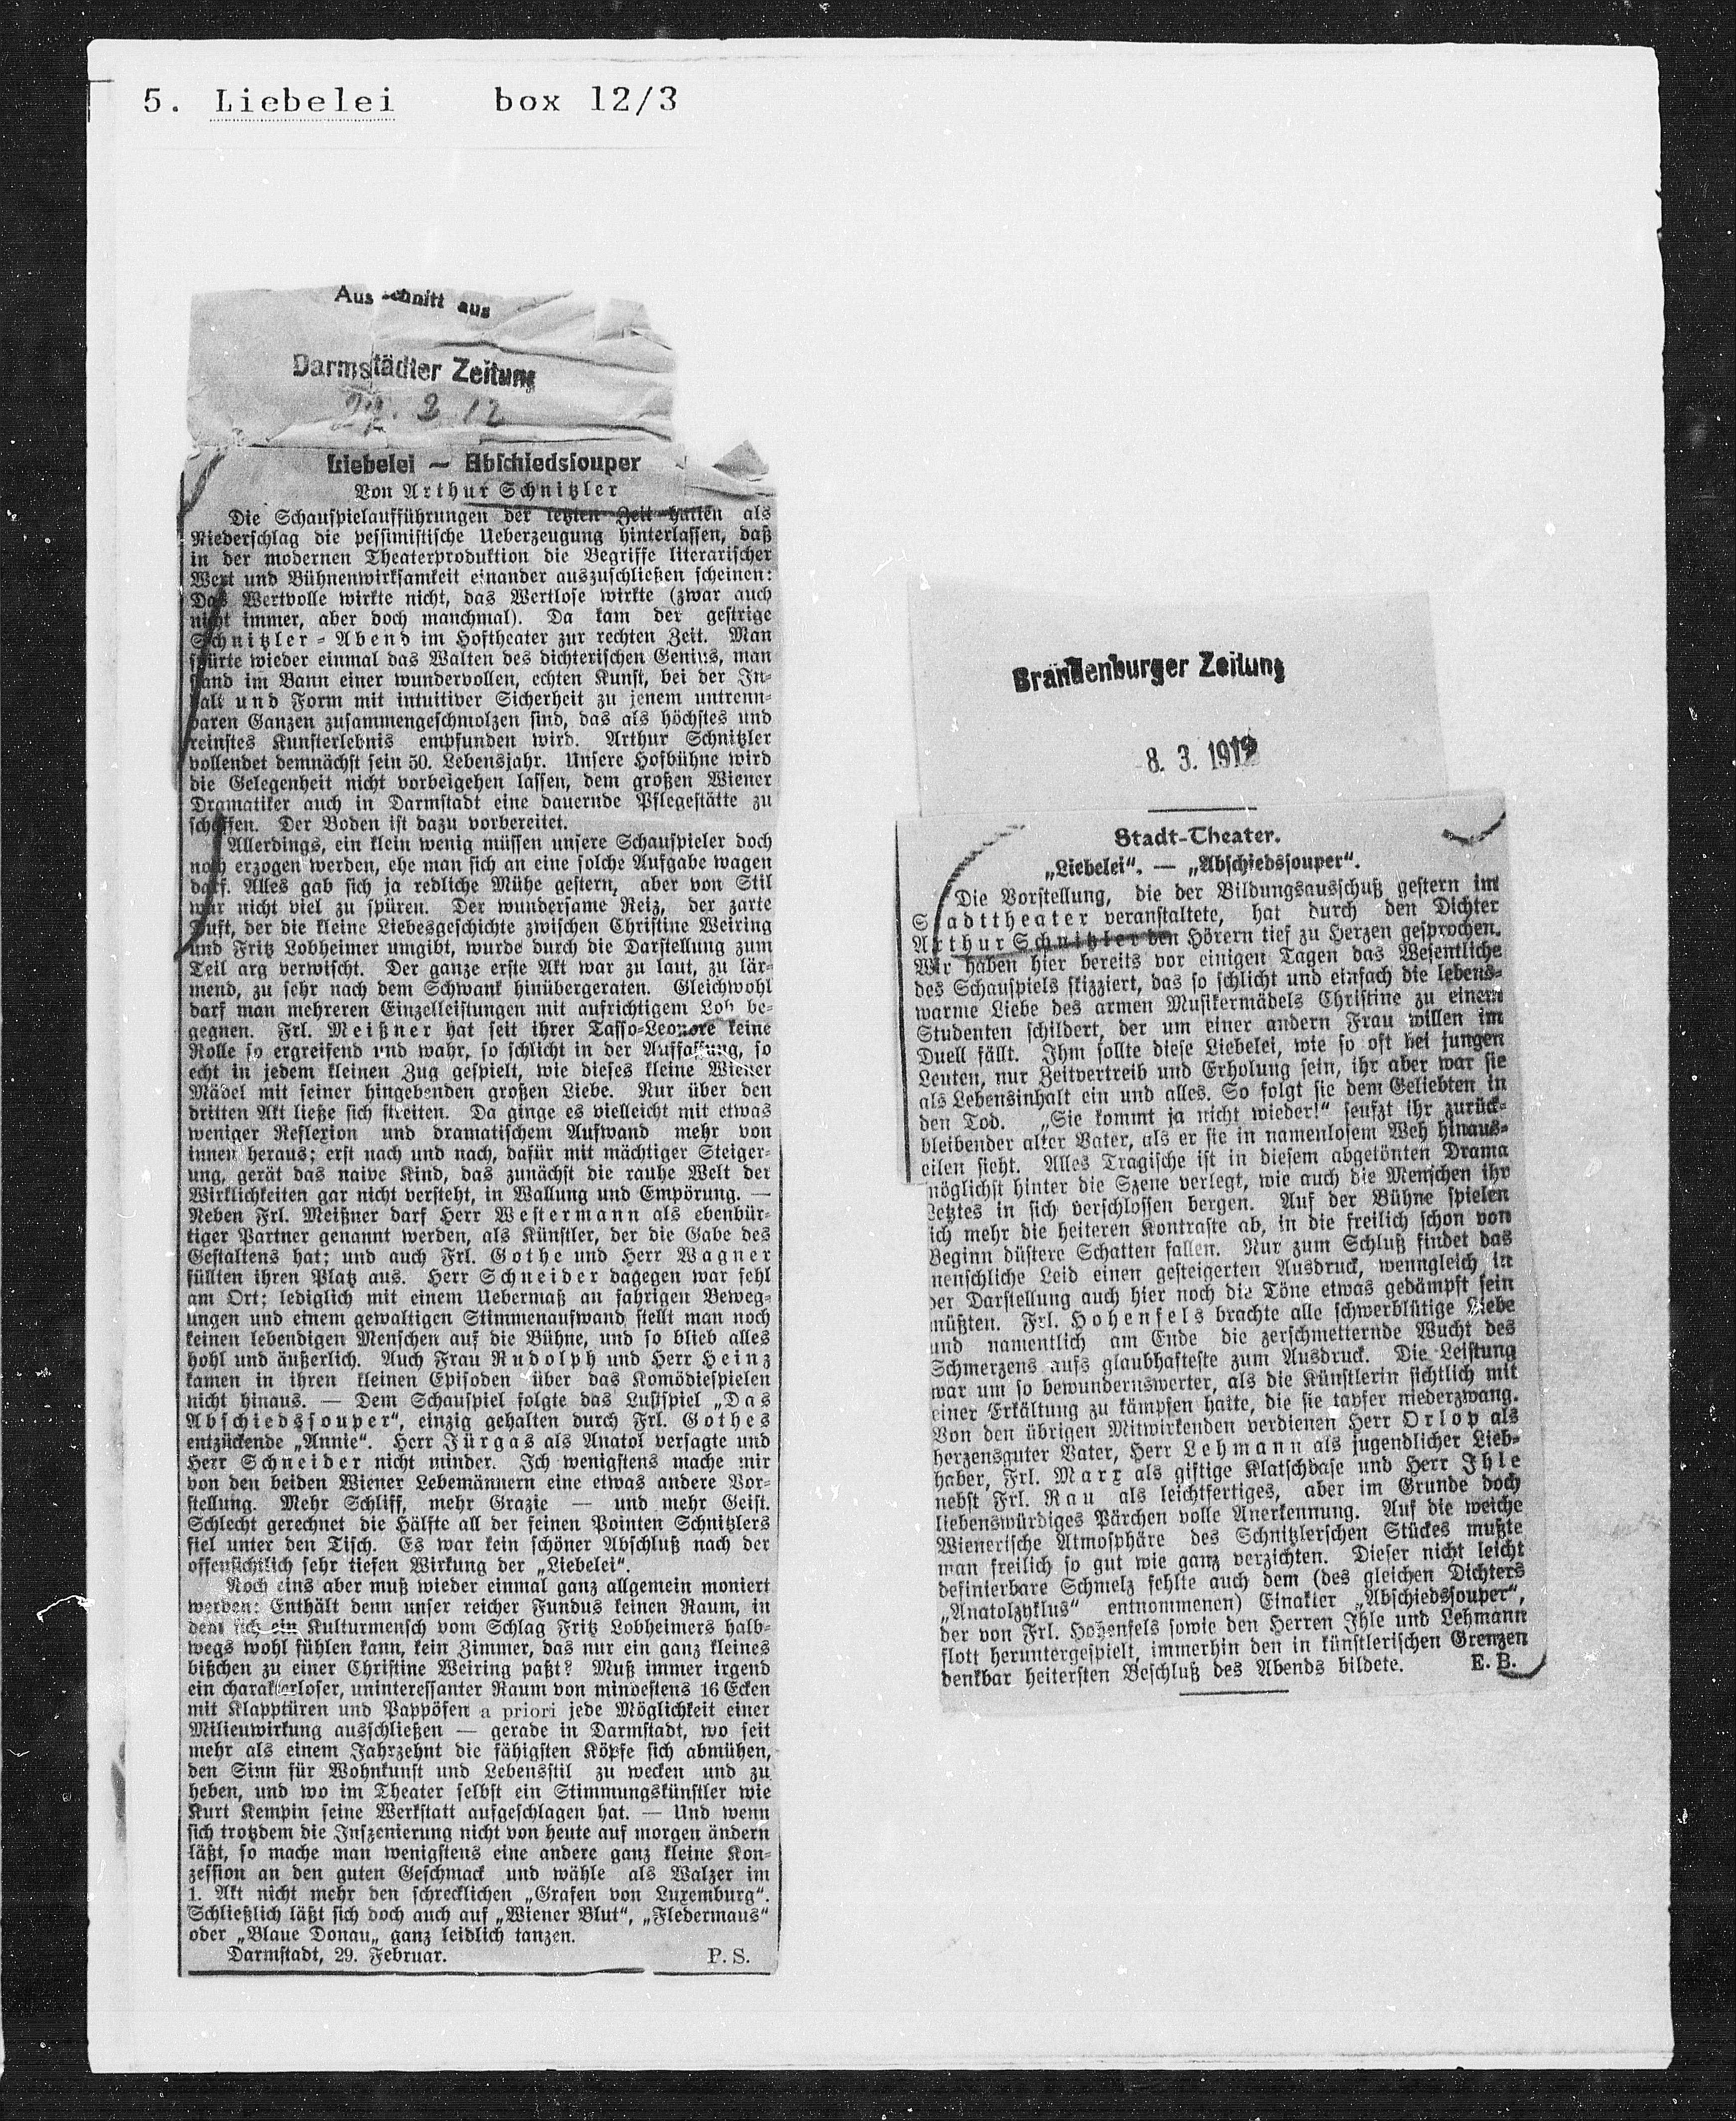 5. Liebelei box 12/3
Ausschnitt aus
Darmstädter Zeitung
2 12
Liebelei — Abschiedssouper
Von Arthur Schnitzler
Die Schauspielaufführungen der letzten Zeit hatten als
Niederschlag die pessimistische Ueberzeugung hinterlassen, daß
in der modernen Theaterproduktion die Begriffe literarischer
Wert und Bühnenwirksamkeit einander auszuschließen scheinen:
Das Wertvolle wirkte nicht, das Wertlose wirkte (zwar auch
nicht immer, aber doch manchmal). Da kam der gestrige
Schnitzler-Abend im Hoftheater zur rechten Zeit. Man
spürte wieder einmal das Walten des dichterischen Genius, man
stand im Bann einer wundervollen, echten Kunst, bei der In-
halt und Form mit intuitiver Sicherheit zu jenem untrenn-
baren Ganzen zusammengeschmolzen sind, das als höchstes und
reinstes Kunsterlebnis empfunden wird. Arthur Schnitzler
vollendet demnächst sein 50. Lebensjahr. Unsere Hofbühne wird
die Gelegenheit nicht vorbeigehen lassen, dem großen Wiener
Dramatiker auch in Darmstadt eine dauernde Pflegestätte zu
schaffen. Der Boden ist dazu vorbereitet.
Allerdings, ein klein wenig müssen unsere Schauspieler doch
noch erzogen werden, ehe man sich an eine solche Aufgabe wagen
darf. Alles gab sich ja redliche Mühe gestern, aber von Stil
war nicht viel zu spüren. Der wundersame Reiz, der zarte
Duft, der die kleine Liebesgeschichte zwischen Christine Weiring
und Fritz Lobheimer umgibt, wurde durch die Darstellung zum
Teil arg verwischt. Der ganze erste Akt war zu laut, zu lär-
mend, zu sehr nach dem Schwank hinübergeraten. Gleichwohl
darf man mehreren Einzelleistungen mit aufrichtigem Lob be-
gegnen. Frl. Meißner hat seit ihrer Tasso-Leonore keine
Rolle so ergreifend und wahr, so schlicht in der Auffassung, so
echt in jedem kleinen Zug gespielt, wie dieses kleine Wiener
Mädel mit seiner hingebenden großen Liebe. Nur über den
dritten Akt ließe sich streiten. Da ginge es vielleicht mit etwas
weniger Reflexion und dramatischem Aufwand mehr von
innen heraus; erst nach und nach, dafür mit mächtiger Steiger-
ung, gerät das naive Kind, das zunächst die rauhe Welt der
Wirklichkeiten gar nicht versteht, in Wallung und Empörung. —
Neben Frl. Meißner darf Herr Westermann als ebenbür-
tiger Partner genannt werden, als Künstler, der die Gabe des
Gestaltens hat; und auch Frl. Gothe und Herr Wagner
füllten ihren Platz aus. Herr Schneider dagegen war fehl
am Ort; lediglich mit einem Uebermaß an fahrigen Beweg-
ungen und einem gewaltigen Stimmenaufwand stellt man noch
keinen lebendigen Menschen auf die Bühne, und so blieb alles
hohl und äußerlich. Auch Frau Rudolph und Herr Heinz
kamen in ihren kleinen Episoden über das Komödiespielen
nicht hinaus. — Dem Schauspiel folgte das Lustspiel „Das
Abschiedssouper“, einzig gehalten durch Frl. Gothes
entzückende „Annie“. Herr Jürgas als Anatol versagte und
Herr Schneider nicht minder. Ich wenigstens mache mir
von den beiden Wiener Lebemännern eine etwas andere Vor-
stellung. Mehr Schliff, mehr Grazie — und mehr Geist.
Schlecht gerechnet die Hälfte all der feinen Pointen Schnitzlers
fiel unter den Tisch. Es war kein schöner Abschluß nach der
offensichtlich sehr tiefen Wirkung der „Liebelei“.
Noch eins aber muß wieder einmal ganz allgemein moniert
werden: Enthält denn unser reicher Fundus keinen Raum, in
dem sich ein Kulturmensch vom Schlag Fritz Lobheimers halb-
wegs wohl fühlen kann, kein Zimmer, das nur ein ganz kleines
bißchen zu einer Christine Weiring paßt? Muß immer irgend
ein charakterloser, uninteressanter Raum von mindestens 16 Ecken
mit Klapptüren und Pappöfen a priori jede Möglichkeit einer
Milieuwirkung ausschließen — gerade in Darmstadt, wo seit
mehr als einem Jahrzehnt die fähigsten Köpfe sich abmühen,
den Sinn für Wohnkunst und Lebensstil zu wecken und zu
heben, und wo im Theater selbst ein Stimmungskünstler wie
Kurt Kempin seine Werkstatt aufgeschlagen hat. — Und wenn
sich trotzdem die Inszenierung nicht von heute auf morgen ändern
läßt, so mache man wenigstens eine andere ganz kleine Kon-
zession an den guten Geschmack und wähle als Walzer im
1. Akt nicht mehr den schrecklichen „Grafen von Luxemburg“.
Schließlich läßt sich doch auch auf „Wiener Blut“, „Fledermaus“
oder „Blaue Donau„ ganz leidlich tanzen.
Darmstadt, 29. Februar. P. S.
Brandenburger Zeitung
8. 3. 1912
Stadt-Theater.
„Liebelei“. — „Abschiedssouper“.
Die Vorstellung, die der Bildungsausschuß gestern im
Stadttheater veranstaltete, hat durch den Dichter
Arthur Schnitzler den Hörern tief zu Herzen gesprochen.
Wir haben hier bereits vor einigen Tagen das Wesentliche
des Schauspiels skizziert, das so schlicht und einfach die lebens-
warme Liebe des armen Musikermädels Christine zu einem
Studenten schildert, der um einer andern Frau willen im
Duell fällt. Ihm sollte diese Liebelei, wie so oft bei jungen
Leuten, nur Zeitvertreib und Erholung sein, ihr aber war sie
als Lebensinhalt ein und alles. So folgt sie dem Geliebten in
den Tod. „Sie kommt ja nicht wieder!“ seufzt ihr zurück-
bleibender alter Vater, als er sie in namenlosem Weh hinaus-
eilen sieht. Alles Tragische ist in diesem abgetönten Drama
möglichst hinter die Szene verlegt, wie auch die Menschen ihr
Letztes in sich verschlossen bergen. Auf der Bühne spielen
sich mehr die heiteren Kontraste ab, in die freilich schon von
Beginn düstere Schatten fallen. Nur zum Schluß findet das
menschliche Leid einen gesteigerten Ausdruck, wenngleich in
der Darstellung auch hier noch die Töne etwas gedämpft sein
müßten. Frl. Hohenfels brachte alle schwerblütige Liebe
und namentlich am Ende die zerschmetternde Wucht des
Schmerzens aufs glaubhafteste zum Ausdruck. Die Leistung
war um so bewundernswerter, als die Künstlerin sichtlich mit
einer Erkältung zu kämpfen hatte, die sie tapfer niederzwang.
Von den übrigen Mitwirkenden verdienen Herr Orlop als
herzensguter Vater, Herr Lehmann als jugendlicher Lieb-
haber, Frl. Marx als giftige Klatschbase und Herr Ihle
nebst Frl. Rau als leichtfertiges, aber im Grunde doch
liebenswürdiges Pärchen volle Anerkennung. Auf die weiche
Wienerische Atmosphäre des Schnitzlerschen Stückes mußte
man freilich so gut wie ganz verzichten. Dieser nicht leicht
definierbare Schmelz fehlte auch dem (des gleichen Dichters
„Anatolzyklus“ entnommenen) Einakter „Abschiedssouper“,
der von Frl. Hohenfels sowie den Herren Ihle und Lehmann
flott heruntergespielt, immerhin den in künstlerischen Grenzen
denkbar heitersten Beschluß des Abends bildete. E. B.